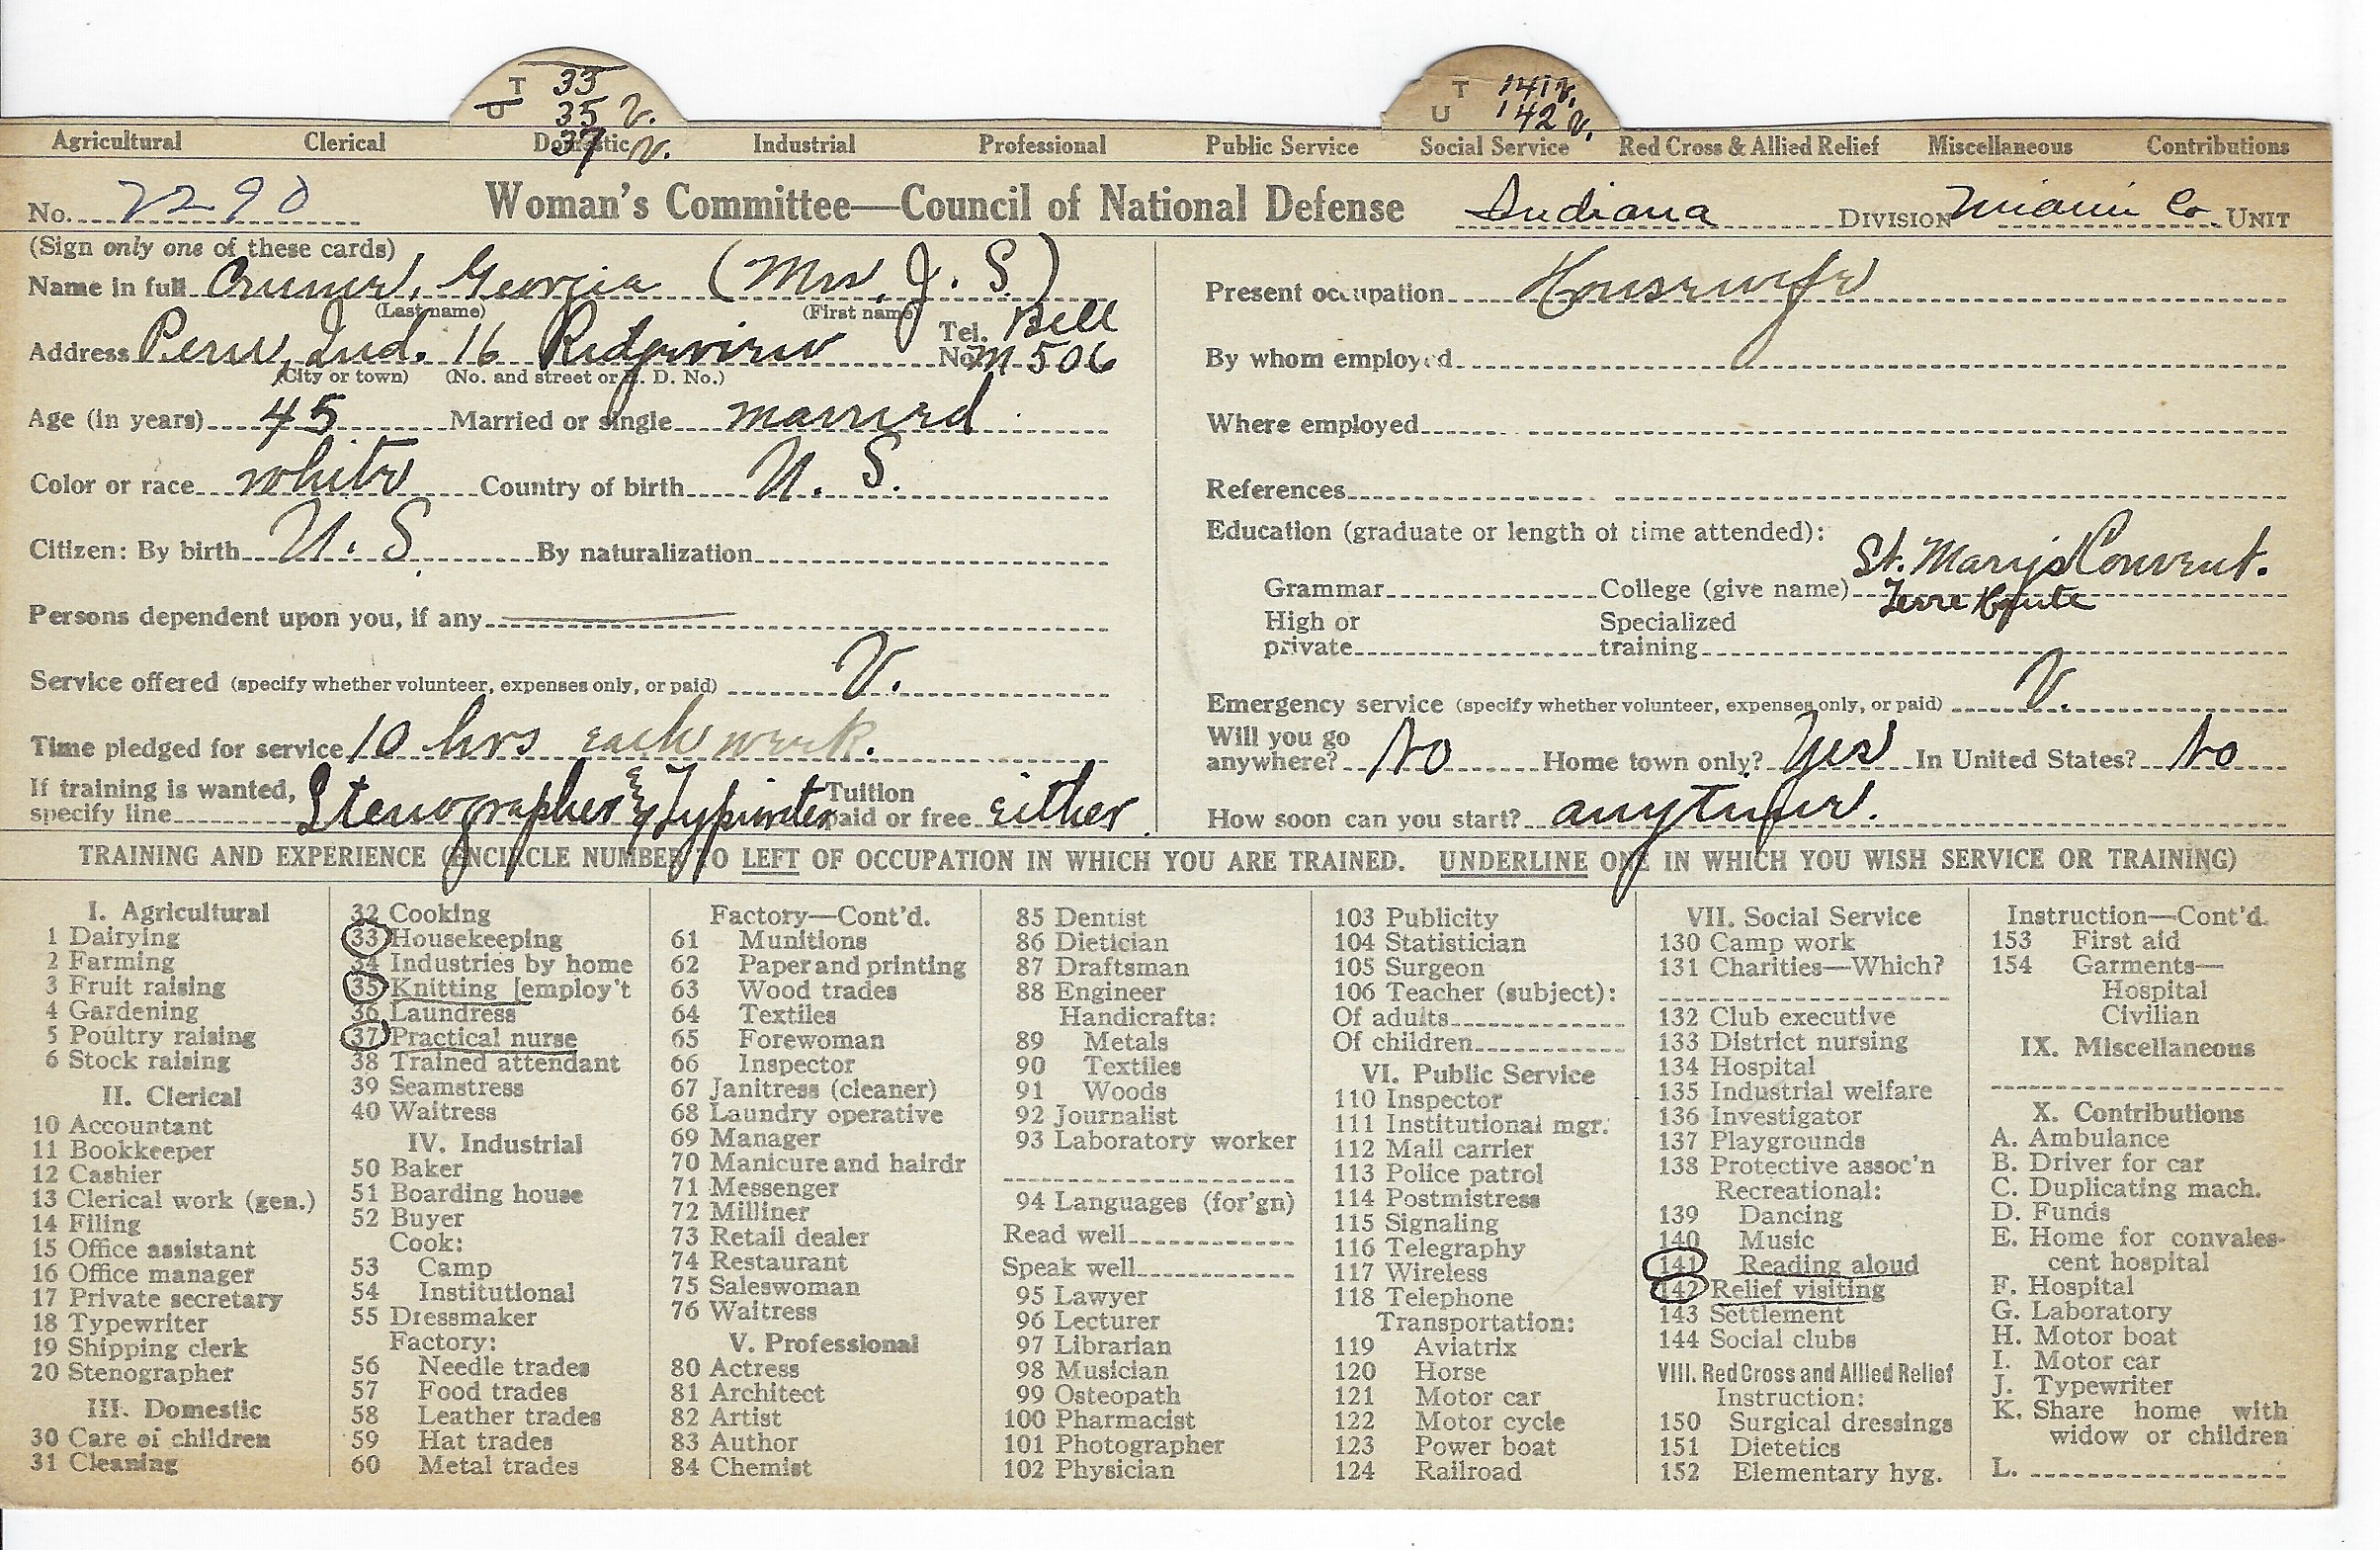 T 33
U 35 v.
37 v.
T 141 v.
U 142 v.
Agricultural Clerical Domestic Industrial Professional Public Service Social Service Red Cross & Allied Relief Miscellaneous Contributions
No. 2290 Woman's Committee—Council of National Defense Indiana DIVISION Miami Co. UNIT
(Sign only one of these cards)
Name in full Georgia (Mrs. J. S.)
(Last name) (First name)
Address Peru, Ind. 16 Ridgeview Tel. No. Bell M 506
(City or town) (No. and street or R. D. No.)
Age (in years) 45 Married or single married
Color or race white Country of birth U. S.
Citizen: By birth U. S. By naturalization
Persons dependent upon you, if any
Service offered (specify whether volunteer, expenses only, or paid) V.
Time pledged for service 10 hrs each week.
If training is wanted, specify line Stenographer & Typwriter Tuition paid or free either
Present occupation Housewife
By whom employed
Where employed
References
Education (graduate or length of time attended):
Grammar College (give name) St. Marys Convent. Terre Haute
High or private Specialized training
Emergency service (specify whether volunteer, expenses only, or paid) V.
Will you go anywhere? No Home town only? Yes In United States? No
How soon can you start? anytime.
TRAINING AND EXPERIENCE (ENCIRCLE NUMBER TO LEFT OF OCCUPATION IN WHICH YOU ARE TRAINED. UNDERLINE ONE IN WHICH YOU WISH SERVICE OR TRAINING)
I. Agricultural
1 Dairying
2 Farming
3 Fruit raising
4 Gardening
5 Poultry raising
6 Stock raising
II. Clerical
10 Accountant
11 Bookkeeper
12 Cashier
13 Clerical work (gen.)
14 Filing
15 Office assistant
16 Office manager
17 Private secretary
18 Typewriter
19 Shipping clerk
20 Stenographer
III. Domestic
30 Care of children
31 Cleaning
32 Cooking
33 Housekeeping
34 Industries by home
35 Knitting [employ't
36 Laundress
37 Practical nurse
38 Trained attendant
39 Seamstress
40 Waitress
IV. Industrial
50 Baker
51 Boarding house
52 Buyer
Cook:
53 Camp
54 Institutional
55 Dressmaker
Factory:
56 Needle trades
57 Food trades
58 Leather trades
59 Hat trades
60 Metal trades
Factory—Cont'd.
61 Munitions
62 Paper and printing
63 Wood trades
64 Textiles
65 Forewoman
66 Inspector
67 Janitress (cleaner)
68 Laundry operative
69 Manager
70 Manicure and hairdr
71 Messenger
72 Milliner
73 Retail dealer
74 Restaurant
75 Saleswoman
76 Waitress
V. Professional
80 Actress
81 Architect
82 Artist
83 Author
84 Chemist
85 Dentist
86 Dietician
87 Draftsman
88 Engineer
Handicrafts:
89 Metals
90 Textiles
91 Woods
92 Journalist
93 Laboratory worker
94 Languages (for'gn)
Read well
Speak well
95 Lawyer
96 Lecturer
97 Librarian
98 Musician
99 Osteopath
100 Pharmacist
101 Photographer
102 Physician
103 Publicity
104 Statistician
105 Surgeon
106 Teacher (subject):
Of adults
Of children
VI. Public Service
110 Inspector
111 Institutional mgr.
112 Mail carrier
113 Police patrol
114 Postmistress
115 Signaling
116 Telegraphy
117 Wireless
118 Telephone
Transportation:
119 Aviatrix
120 Horse
121 Motor car
122 Motor cycle
123 Power boat
124 Railroad
VII. Social Service
130 Camp work
131 Charities—Which?
132 Club executive
133 District nursing
134 Hospital
135 Industrial welfare
136 Investigator
137 Playgrounds
138 Protective assoc'n
Recreational:
139 Dancing
140 Music
141 Reading aloud
142 Relief visiting
143 Settlement
144 Social clubs
VIII. Red Cross and Allied Relief
Instruction:
150 Surgical dressings
151 Dietetics
152 Elementary hyg.
Instruction—Cont'd.
153 First aid
154 Garments—
Hospital
Civilian
IX. Miscellaneous
X. Contributions
A. Ambulance
B. Driver for car
C. Duplicating mach.
D. Funds
E. Home for convales-
cent hospital
F. Hospital
G. Laboratory
H. Motor boat
I. Motor car
J. Typewriter
K. Share home with
widow or children
L.